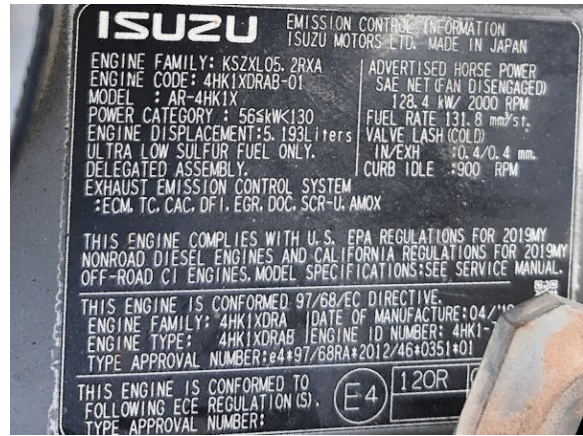 ISUZU
EMISSION CONTROL INFORMATION
ISUZU MOTORS LTD. MADE IN JAPAN
ENGINE FAMILY: KSZXL05.2RXA
ENGINE CODE: 4HK1XDRAB-01
MODEL : AR-4HK1X
POWER CATEGORY : 56≤kW<130
ENGINE DISPLACEMENT:5.193Liters
ULTRA LOW SULFUR FUEL ONLY.
DELEGATED ASSEMBLY.
EXHAUST EMISSION CONTROL SYSTEM
:ECM, TC, CAC, DFI, EGR, DOC, SCR-U, AMOX
ADVERTISED HORSE POWER
SAE NET(FAN DISENGAGED)
128.4 kW/ 2000 RPM
FUEL RATE 131.8 mm³/st.
VALVE LASH(COLD)
IN/EXH :0.4/0.4 mm.
CURB IDLE :900 RPM
THIS ENGINE COMPLIES WITH U.S. EPA REGULATIONS FOR 2019MY
NONROAD DIESEL ENGINES AND CALIFORNIA REGULATIONS FOR 2019MY
OFF-ROAD CI ENGINES. MODEL SPECIFICATIONS:SEE SERVICE MANUAL.
THIS ENGINE IS CONFORMED 97/68/EC DIRECTIVE.
ENGINE FAMILY: 4HK1XDRA DATE OF MANUFACTURE:04/
ENGINE TYPE: 4HK1XDRAB ENGINE ID NUMBER: 4HK1-
TYPE APPROVAL NUMBER:e4*97/68RA*2012/46*0351*01
THIS ENGINE IS CONFORMED TO
FOLLOWING ECE REGULATION(S).
TYPE APPROVAL NUMBER:
E4
120R